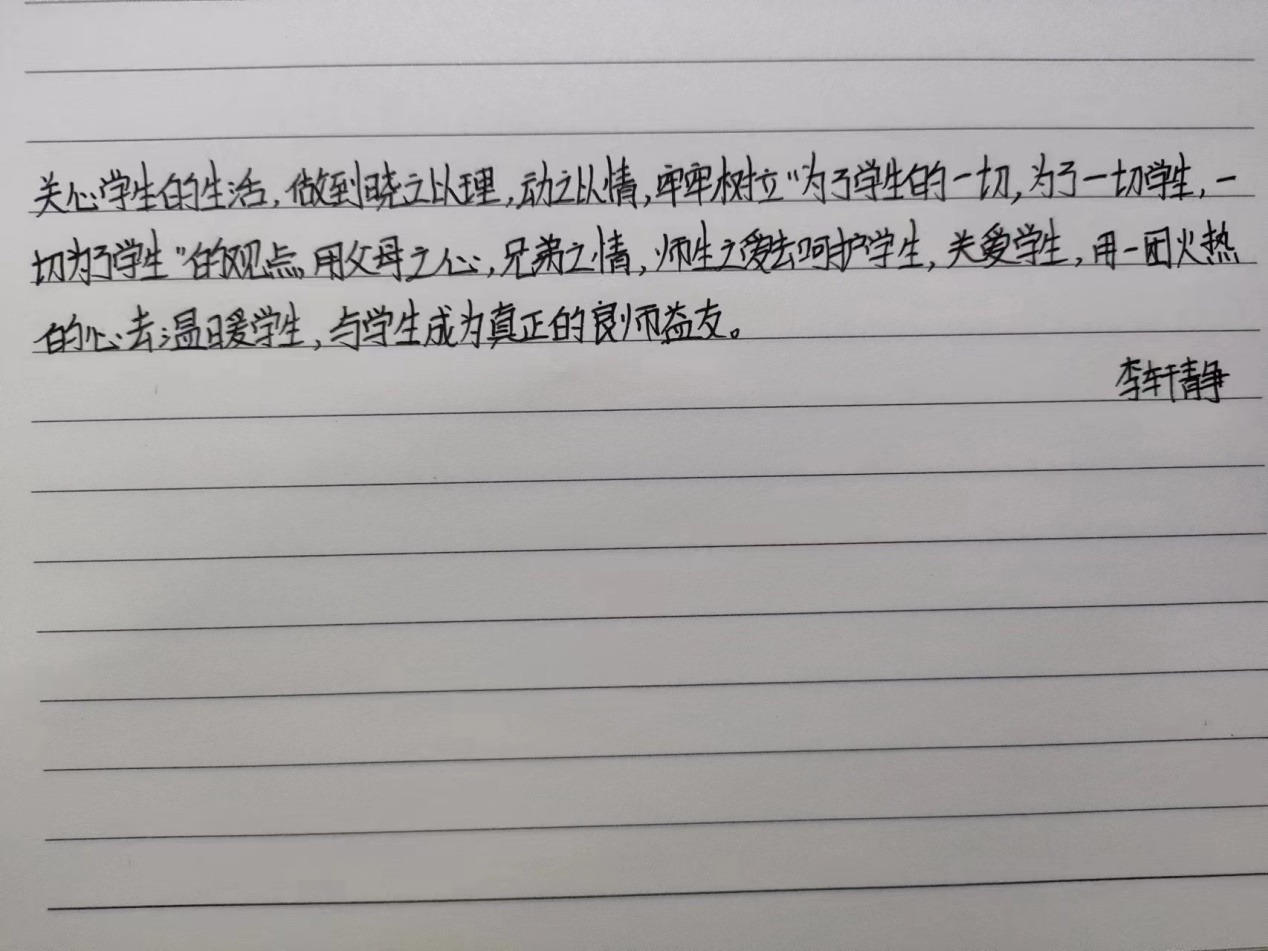 关心学生的生活，做到晓之以理，动之以情，牢牢树立“为了学生的一切，为了一切学生，一
切为了学生”的观点，用父母之心，兄弟之情，师生之爱去呵护学生，关爱学生，用一团火热
的心去温暖学生，与学生成为真正的良师益友。
李轩静